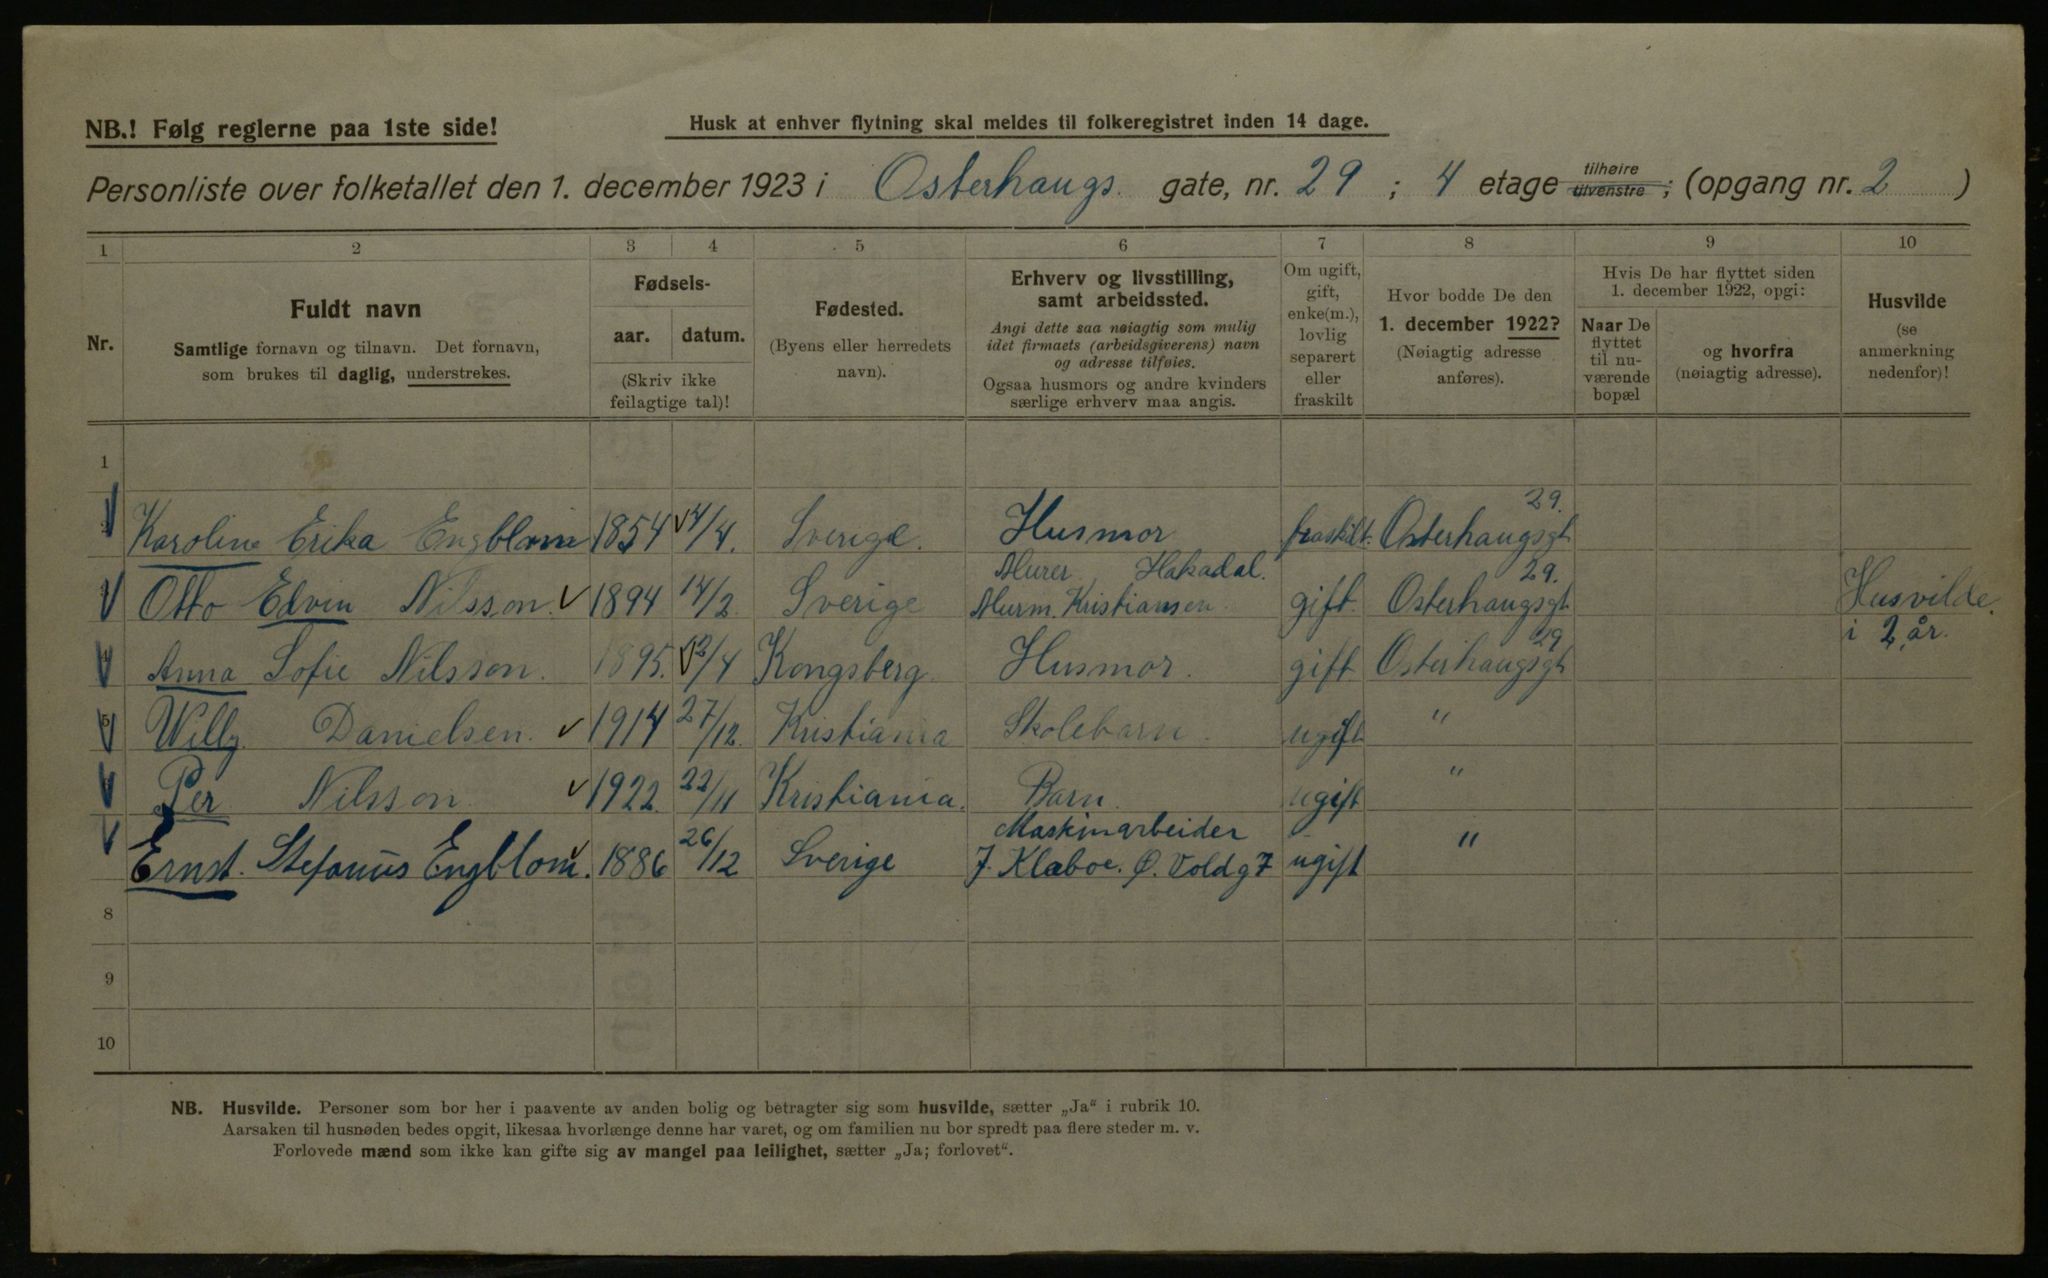 NB.! Følg reglerne paa 1ste side!
Husk at enhver flytning skal meldes til folkeregistret inden 14 dage.
Personliste over folketallet den 1. december 1923 i Osterhaugs. gate, nr. 29 ; 4 etage tilhøire tilvenstre ; (opgang nr. 2 )
1 2 3 4 5 6 7 8 9 10
Nr.
Fuldt navn
Samtlige fornavn og tilnavn. Det fornavn,
som brukes til daglig, understrekes.
Fødsels-
aar. datum.
(Skriv ikke
feilagtige tal)!
Fødested.
(Byens eller herredets
navn).
Erhverv og livsstilling,
samt arbeidssted.
Angi dette saa nøiagtig som mulig
idet firmaets (arbeidsgiverens) navn
og adresse tilføies.
Ogsaa husmors og andre kvinders
særlige erhverv maa angis.
Om ugift,
gift,
enke(m.),
lovlig
separert
eller
fraskilt
Hvor bodde De den
1. december 1922?
(Nøiagtig adresse
anføres).
Hvis De har flyttet siden
1. december 1922, opgi:
Naar De
flyttet
til nu-
værende
bopæl
og hvorfra
(nøiagtig adresse).
Husvilde
(se
anmerkning
nedenfor)!
1
29.
Karoline Erika Engblom 1854 /4. Sverige. Husmor fraskilt. Osterhaugsgt
Murer Hakadal. 29.
Otto Edvin Nilsson. 1894 14/2 Sverige Murm. Kristiansen. gift. Osterhaugsgt Husvilde.
i 2 år.
29
Anna Sofie Nilsson. 1895. /4 Kongsberg Husmor. gift Osterhaugsgt
5 Willy Danielsen. 1914 27/12. Kristiania Skolebarn. ugift "
Per Nilsson 1922. 22/11 Kristiania. Barn. ugift "
Maskinarbeider
Ernst. Stefanus Engblom. 1886 26/12 Sverige J. Klaboe. Ø. Voldg 7 ugift "
8
9
10
NB. Husvilde. Personer som bor her i paavente av anden bolig og betragter sig som husvilde, sætter „Ja“ i rubrik 10.
Aarsaken til husnøden bedes opgit, likesaa hvorlænge denne har varet, og om familien nu bor spredt paa flere steder m. v.
Forlovede mænd som ikke kan gifte sig av mangel paa leilighet, sætter „Ja; forlovet“.